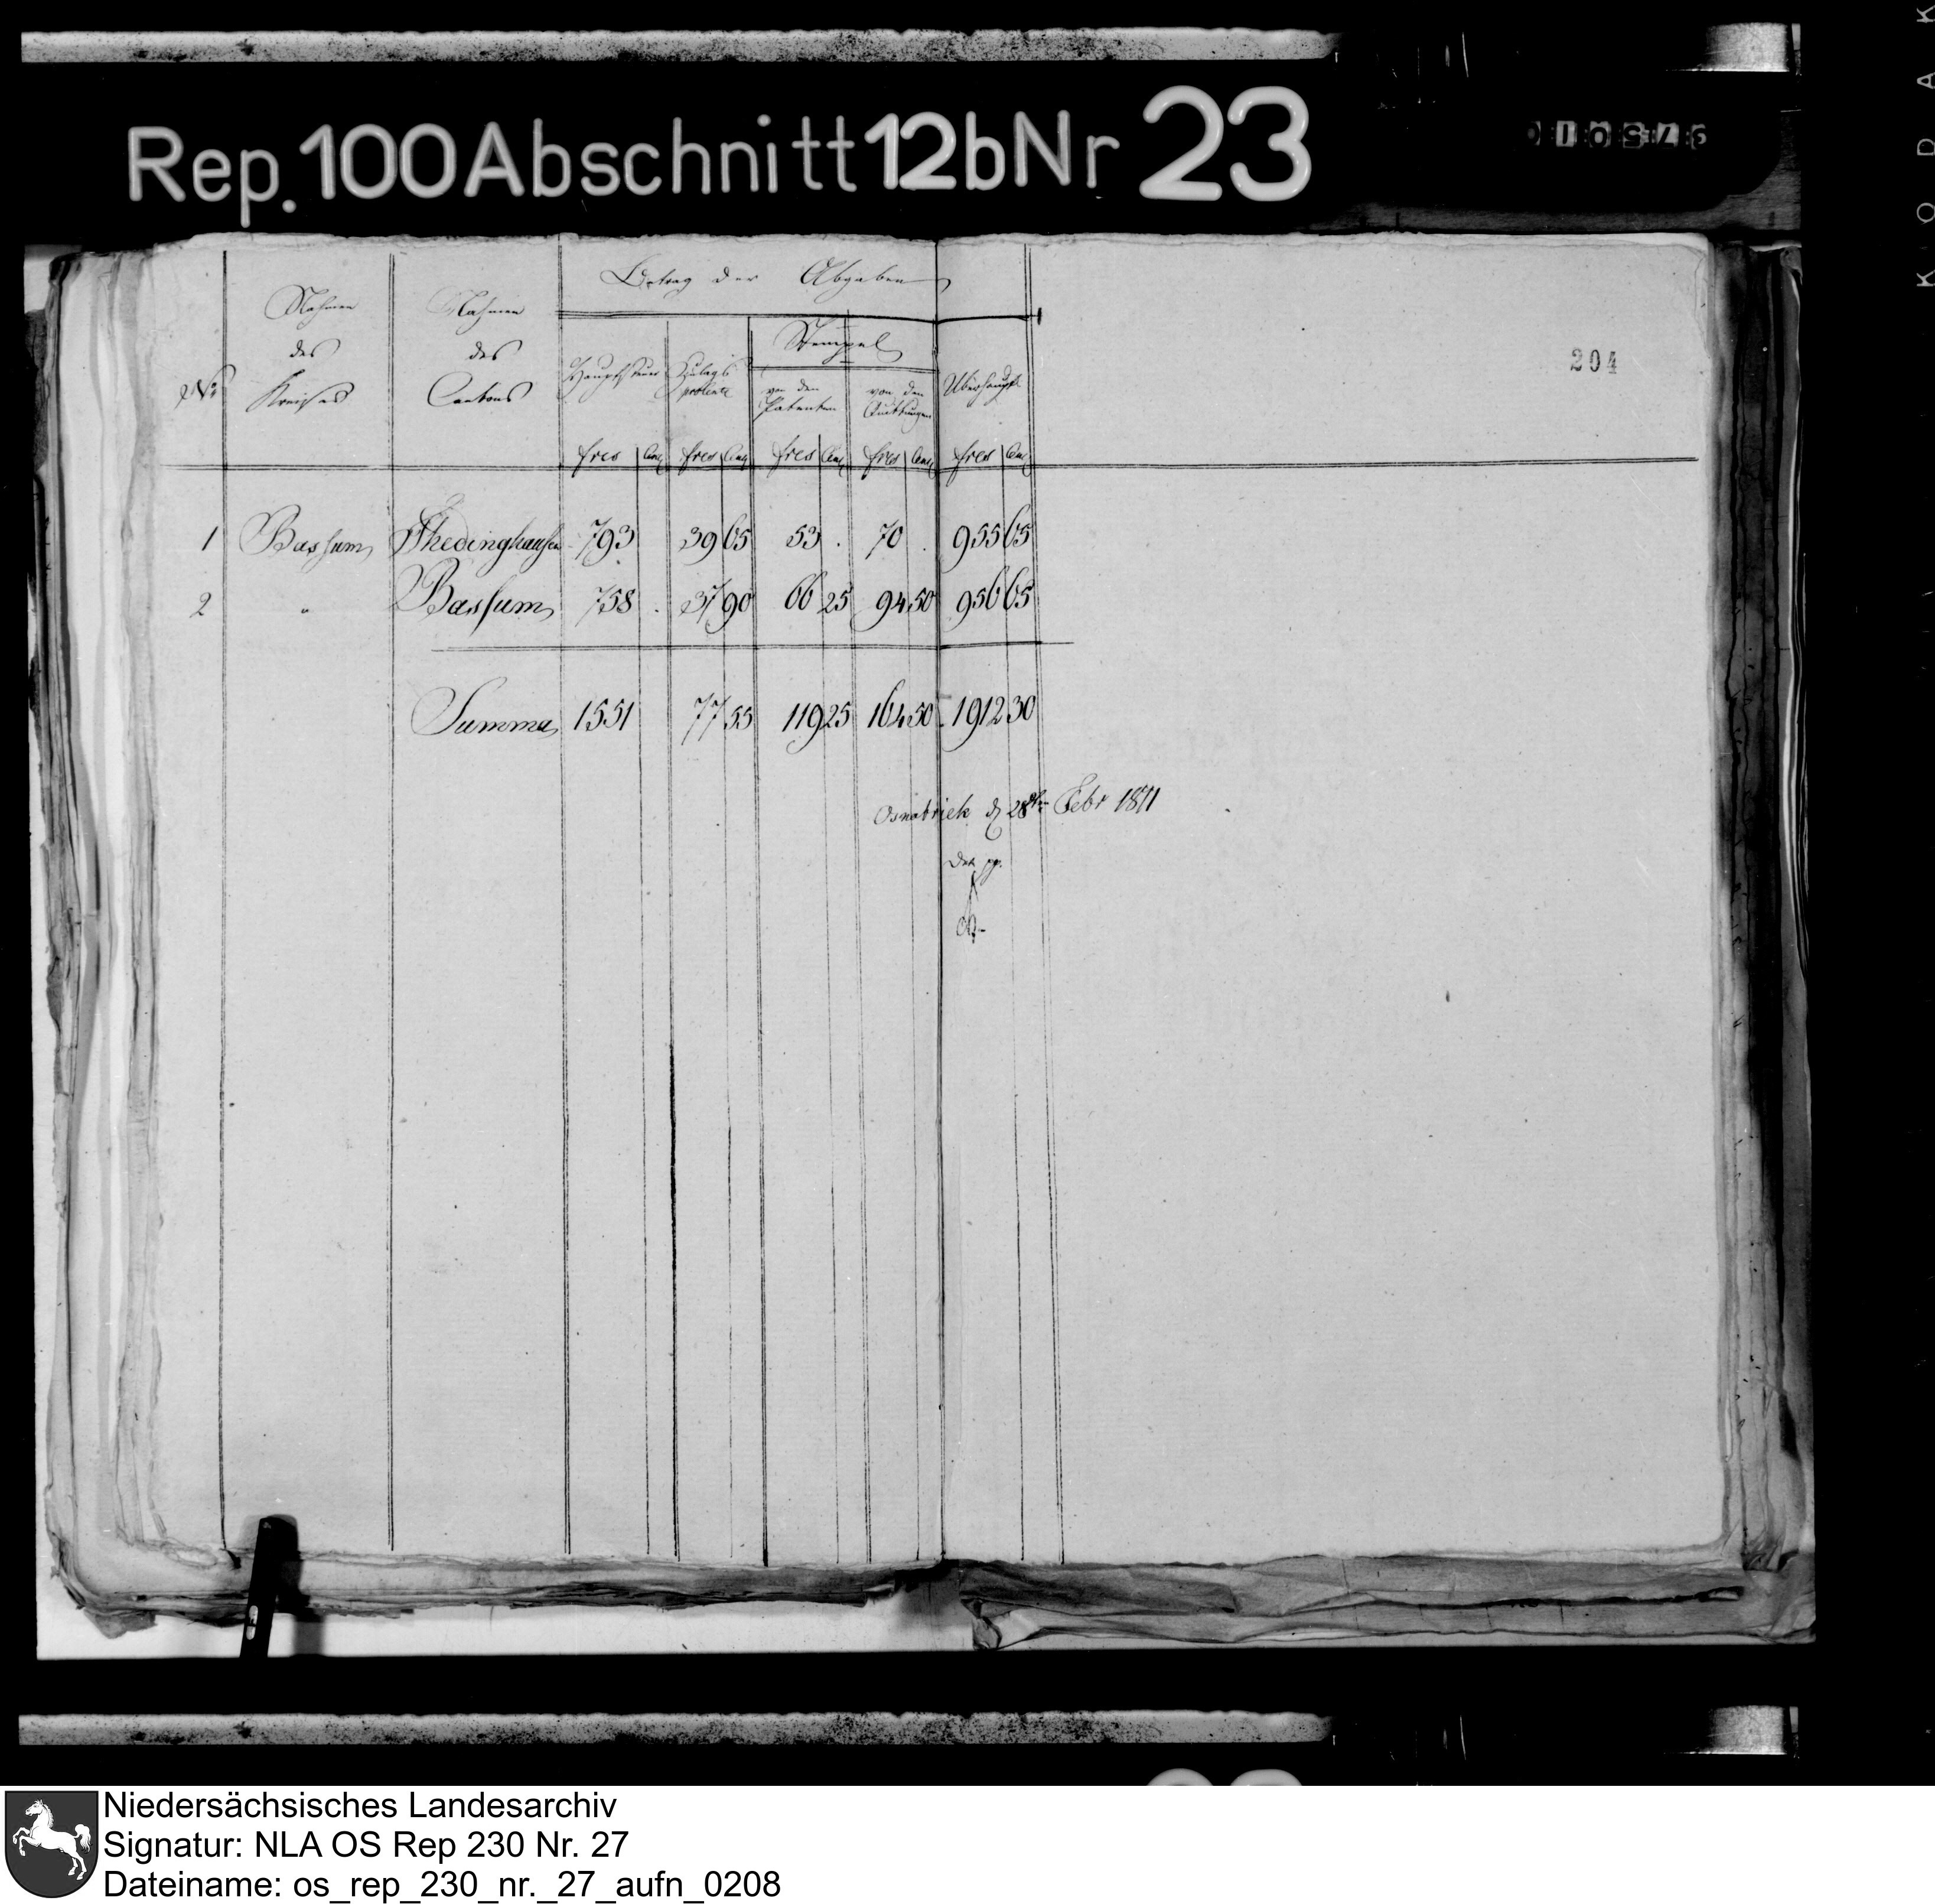 KODAK
Rep. 100 Abschnitt 12b Nr 23
204
Betrag der Abgaben
Nro
Nahmen des Kreises
Nahmen des Cantons
Hauptsteuer
Zulags procente
Stempel
von den Patenten
von den Quittungen
Überhaupt
frcs Cent frcs Cent frcs Cent frcs Cent frcs Cent
1 Bassum Thedinghausen 793 39 65 53 . 70 . 955 65
2 " Bassum 758 . 37 90 66 25 94 50 956 65
Summa 1551 77 55 119 25 164 50 1912 30
Osnabrück d 28ten Febr 1811
Der pp.
Niedersächsisches Landesarchiv
Signatur: NLA OS Rep 230 Nr. 27
Dateiname: os_rep_230_nr._27_aufn_0208